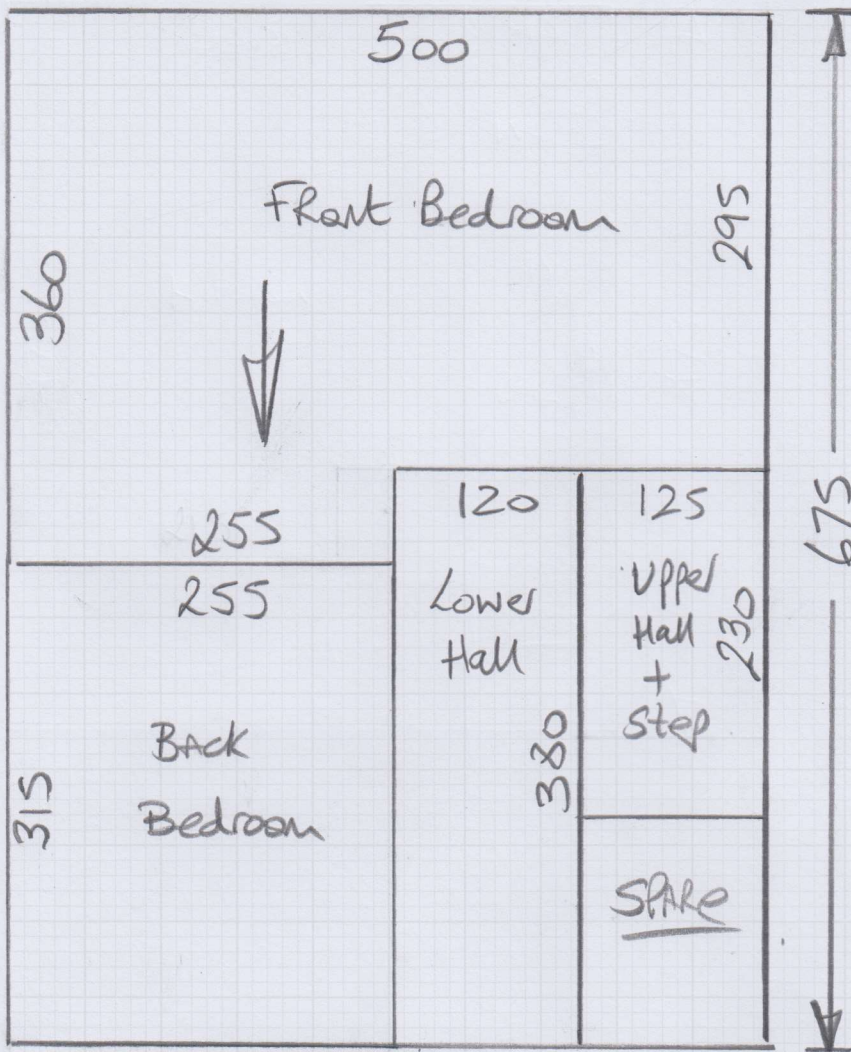 500
FRont Bedroom
295
360
675
255
255
120
125
Lower
Hall
Upper
Hall
+
Step
230
380
BAck
Bedroom
315
SPARe